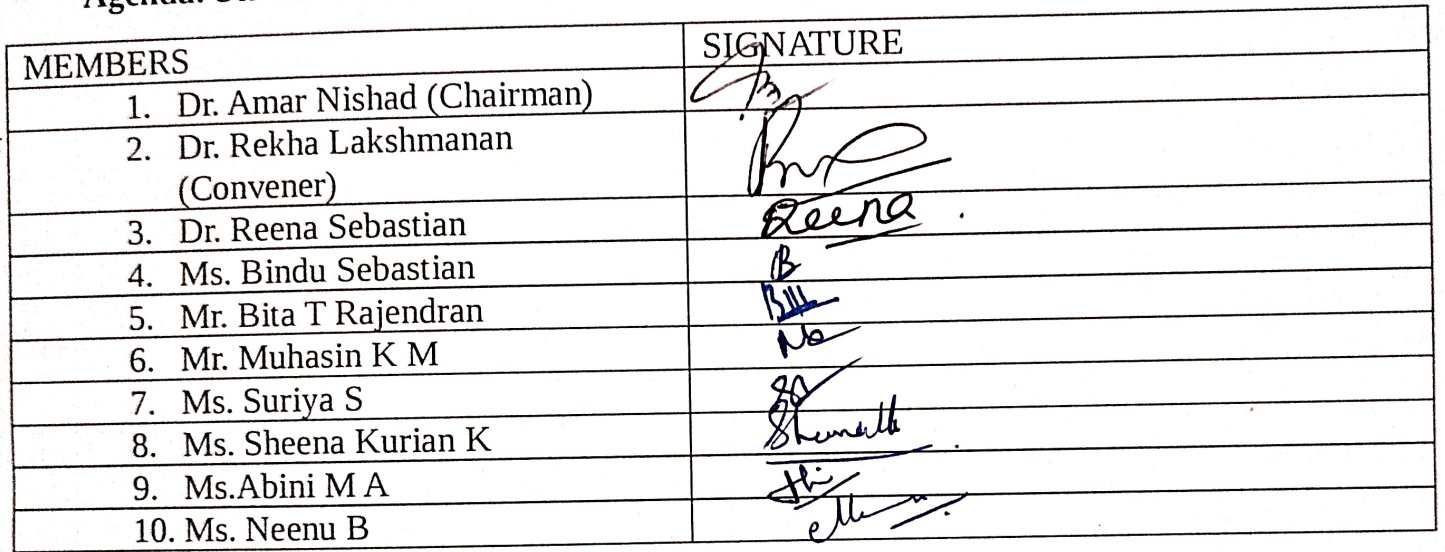 Agenda:
MEMBERS SIGNATURE
1. Dr. Amar Nishad (Chairman)
2. Dr. Rekha Lakshmanan
(Convener)
3. Dr. Reena Sebastian Reena
4. Ms. Bindu Sebastian B
5. Mr. Bita T Rajendran
6. Mr. Muhasin K M
7. Ms. Suriya S
8. Ms. Sheena Kurian K
9. Ms.Abini M A
10. Ms. Neenu B